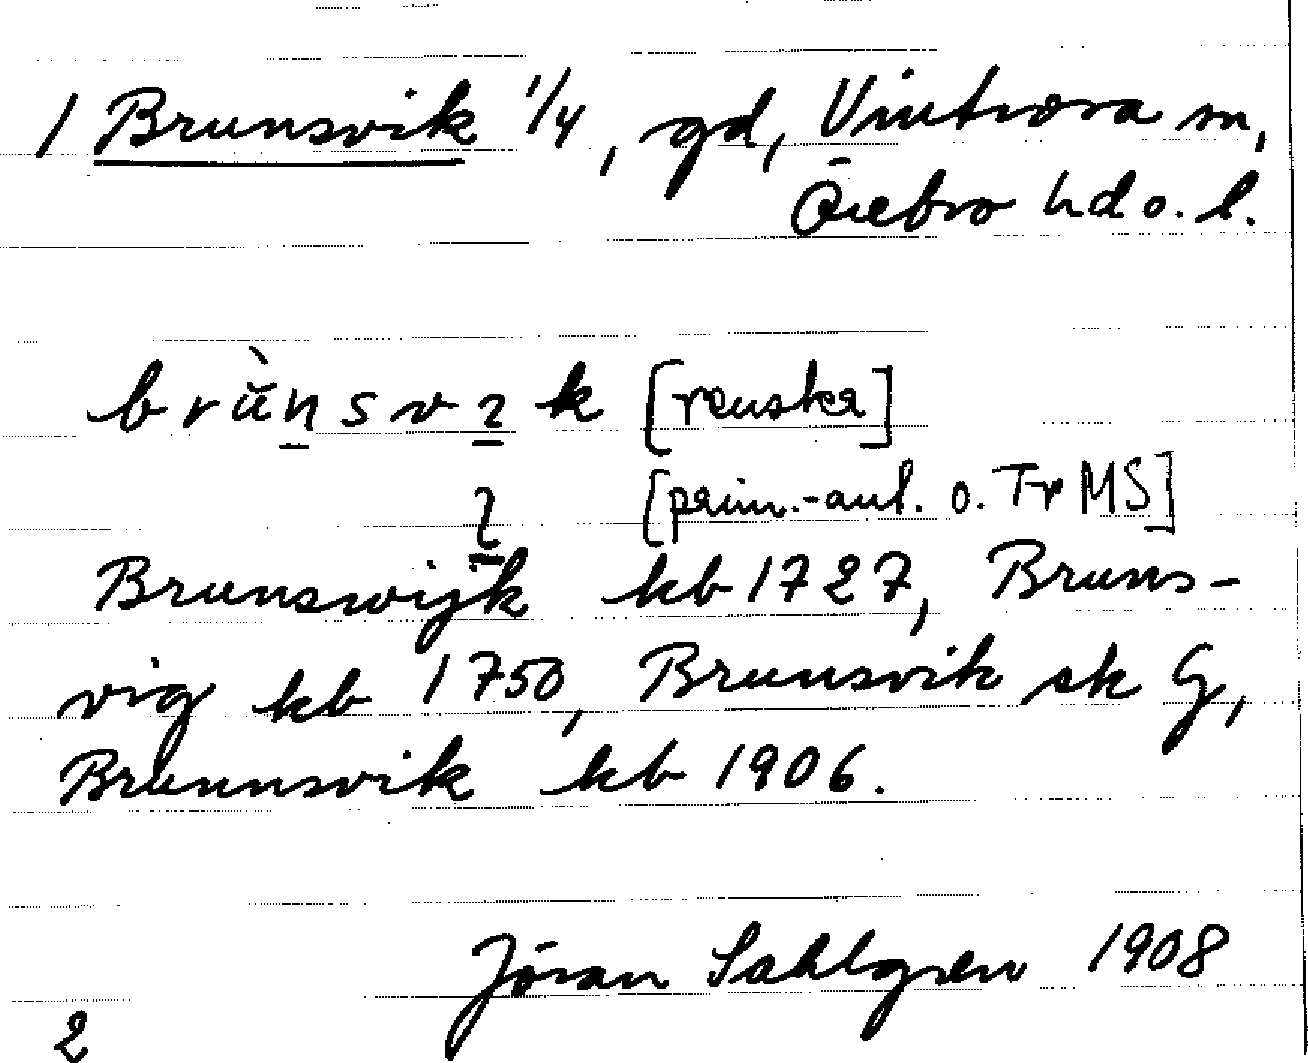 1 Brunsvik 1/4, gd, Vintrosa sn,
Örebro hd o. l.
brùnsvık [renskr]
ı [prim.-aut. o. Tr MS]
Brunswijk kb 1727, Bruns-
vig kb 1750, Brunsvik sk G,
Brunnsvik kb 1906.
Jöran Sahlgren 1908
2